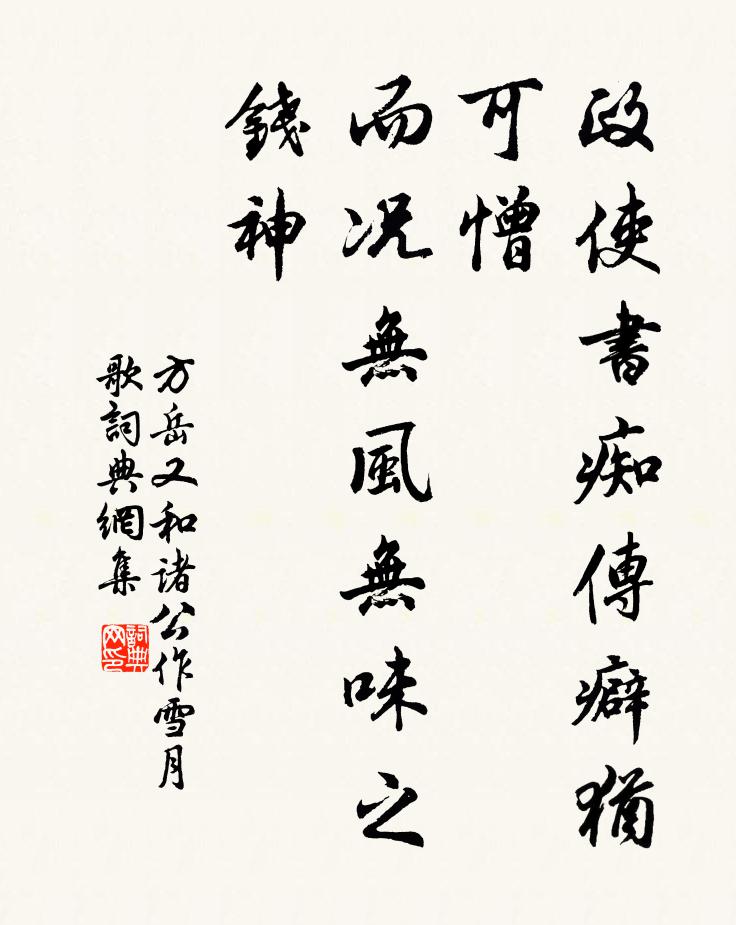 政使書痴傳癖猶
可憎
而況無風無味之
錢神
方岳又和諸公作雪月
歌詞典網集
詞典網印